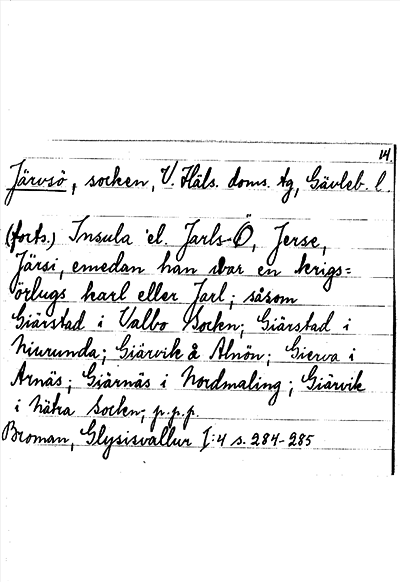 14.
Järvsö, socken, V. Häls. doms. tg, Gävleb. l.
(forts.) Insula el. Jarls-Ö, Jerse,
Järsi, emedan han war en krigs=
örlugs karl eller Jarl; såsom
Giärstad i Valbo Socken; Giärstad i
Niurunda; Giärvik å Alnön; Gierva i
Arnäs; Giärnäs i Nordmaling; Giärvik
i Nätra Socken; p.p.p.
Broman, Glysisvallur I:4 s. 284-285